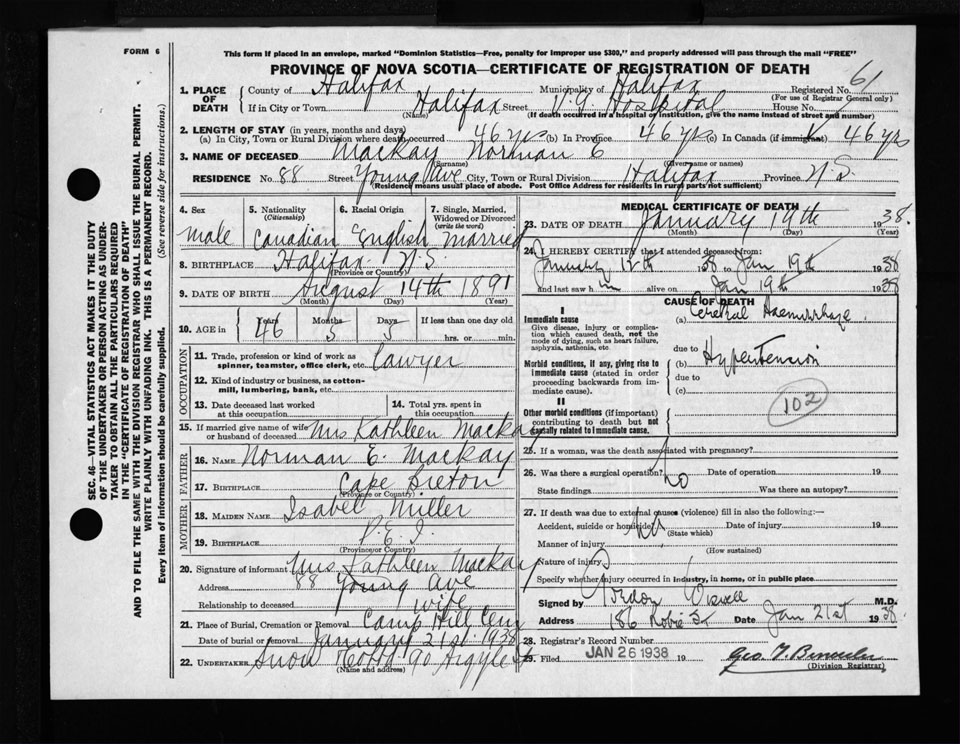 FORM 6
This form if placed in an envelope, marked "Dominion Statistics—Free, penalty for improper use $300," and properly addressed will pass through the mail "FREE"
PROVINCE OF NOVA SCOTIA—CERTIFICATE OF REGISTRATION OF DEATH
SEC. 46—VITAL STATISTICS ACT MAKES IT THE DUTY
OF THE UNDERTAKER OR PERSON ACTING AS UNDER-
TAKER TO OBTAIN ALL THE PARTICULARS REQUIRED
IN THE "CERTIFICATE OF REGISTRATION OF DEATH"
AND TO FILE THE SAME WITH THE DIVISION REGISTRAR WHO SHALL ISSUE THE BURIAL PERMIT.
WRITE PLAINLY WITH UNFADING INK. THIS IS A PERMANENT RECORD.
Every item of information should be carefully supplied. (See reverse side for instructions.)
1. PLACE OF DEATH
County of Halifax Municipality of Halifax Registered No. 61
(For use of Registrar General only)
If in City or Town Halifax Street V.G. Hospital House No.
(Name) (If death occurred in a hospital or institution, give the name instead of street and number)
2. LENGTH OF STAY (in years, months and days)
(a) In City, Town or Rural Division where death occurred 46 yrs (b) In Province 46 yrs (c) In Canada (if immigrant) 46 yrs
3. NAME OF DECEASED Mackay Norman E
(Surname) (Given name or names)
RESIDENCE No. 88 Street Young Ave City, Town or Rural Division Halifax Province N.S.
(Residence means usual place of abode. Post Office Address for residents in rural parts not sufficient)
4. Sex male
5. Nationality (Citizenship) Canadian
6. Racial Origin English
7. Single, Married, Widowed or Divorced (write the word) Married
8. BIRTHPLACE Halifax N.S.
(Province or Country)
9. DATE OF BIRTH August 14th 1891
(Month) (Day) (Year)
10. AGE in Years 46 Months 5 Days 5 If less than one day old
hrs. or min.
OCCUPATION
11. Trade, profession or kind of work as spinner, teamster, office clerk, etc. Lawyer
12. Kind of industry or business, as cotton-mill, lumbering, bank, etc.
13. Date deceased last worked at this occupation
14. Total yrs. spent in this occupation
15. If married give name of wife or husband of deceased Mrs Kathleen Mackay
FATHER
16. NAME Norman E. Mackay
17. BIRTHPLACE Cape Breton
(Province or Country)
MOTHER
18. MAIDEN NAME Isabel Miller
19. BIRTHPLACE P.E.I.
(Province or Country)
20. Signature of informant Mrs Kathleen Mackay
Address 88 Young Ave
Relationship to deceased wife
21. Place of Burial, Cremation or Removal Camp Hill Cem
Date of burial or removal January 21st 1938
22. UNDERTAKER Snow 90 Argyle St
(Name and address)
MEDICAL CERTIFICATE OF DEATH
23. DATE OF DEATH January 19th 1938.
(Month) (Day) (Year)
24. I HEREBY CERTIFY that I attended deceased from:
January 12th 38 to Jan 19th 1938
and last saw him alive on Jan 19th 1938
CAUSE OF DEATH
I
Immediate cause
Give disease, injury or complication which caused death, not the mode of dying, such as heart failure, asphyxia, asthenia, etc.
(a) Cerebral Haemorrhage
due to
Morbid conditions, if any, giving rise to immediate cause (stated in order proceeding backwards from immediate cause).
(b) Hypertension
due to
(c)
102
II
Other morbid conditions (if important) contributing to death but not causally related to immediate cause.
25. If a woman, was the death associated with pregnancy?
26. Was there a surgical operation? no Date of operation 19
State findings Was there an autopsy?
27. If death was due to external causes (violence) fill in also the following:—
Accident, suicide or homicide? no Date of injury 19
(State which)
Manner of injury
(How sustained)
Nature of injury
Specify whether injury occurred in industry, in home, or in public place
Signed by Wiswell M.D.
Address 186 Robie St Date Jan 21st 1938.
28. Registrar's Record Number
29. Filed JAN 26 1938 19
Geo.
(Division Registrar)